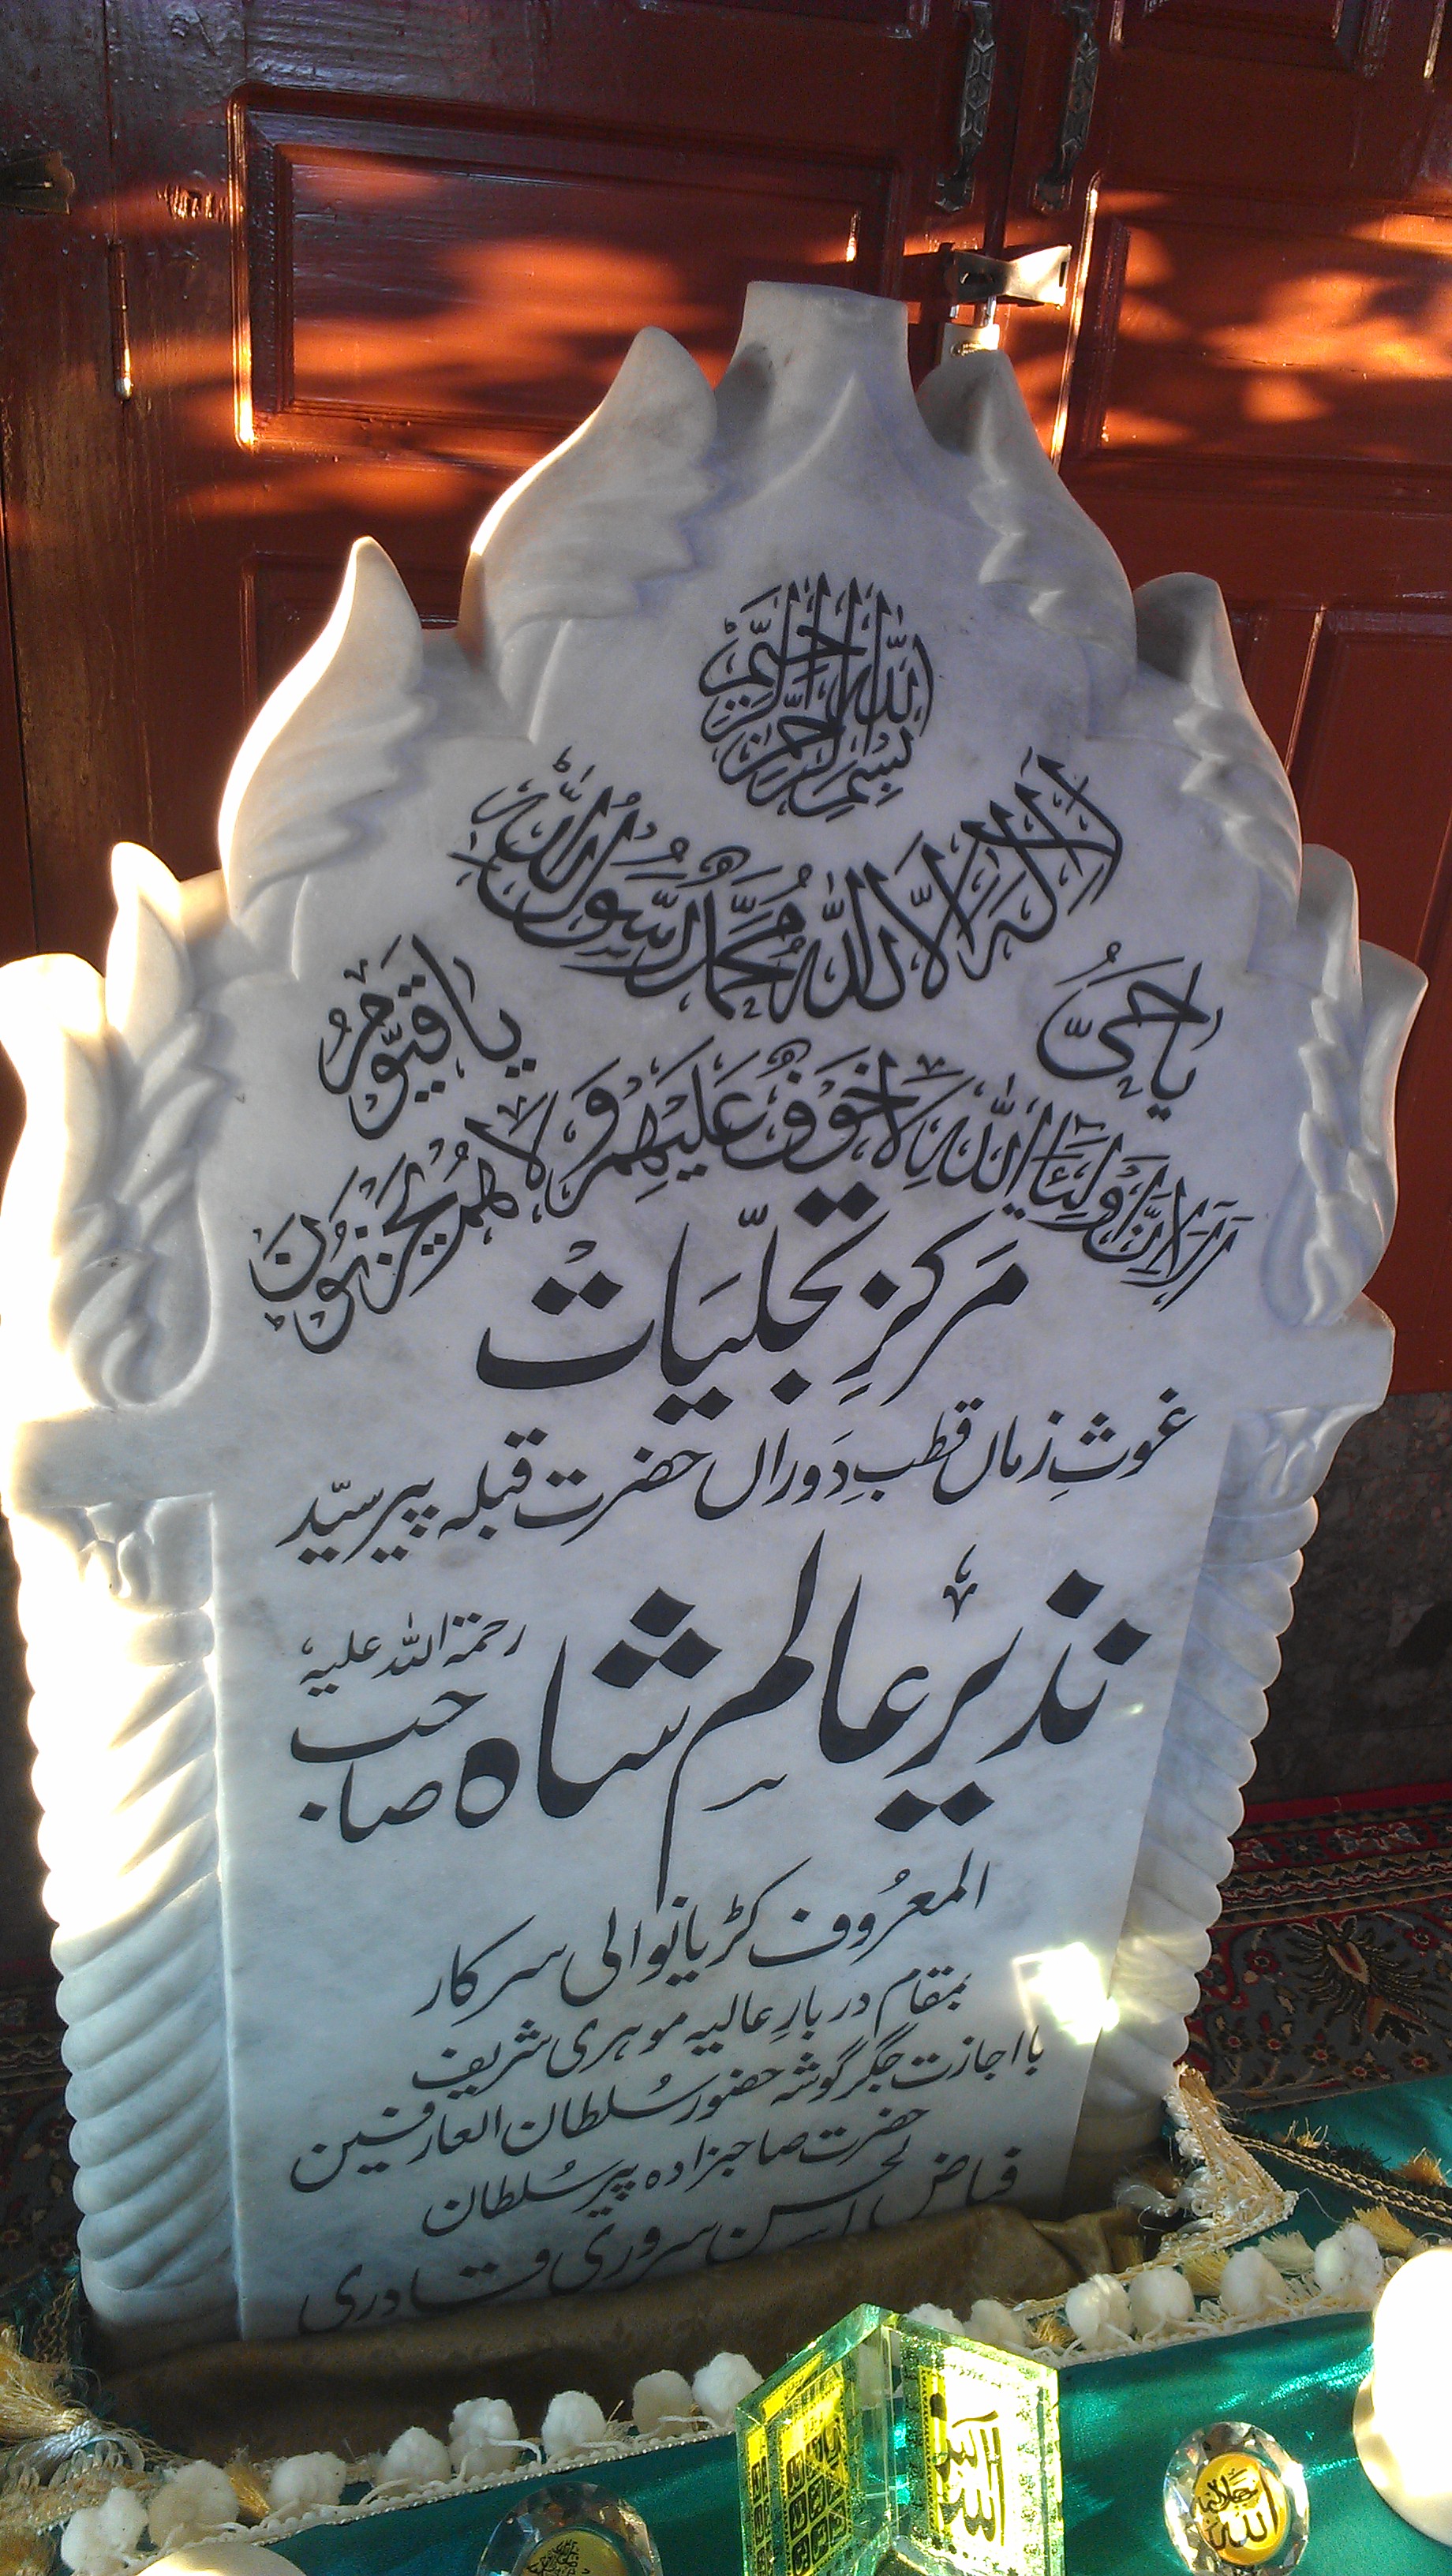 بسم الله الرحمن الرحیم
لا اله الا الله محمد رسول الله
یا حی یا قیوم
الا ان اولیاء الله لا خوف علیهم ولا هم یحزنون
مرکزِ تجلّیات
غوثِ زماں قطبِ دَوراں حضرت قبلہ پیر سیّد
نذیر عالم شاہ صاحب رحمۃ اللہ علیہ
المعرُوف کڑیانوالی سرکار
بمقام دربارِ عالیہ موہری شریف
با اجازت جگر گوشہ حضور سُلطان العارفین
حضرت صاحبزادہ پیر سُلطان
فیاض الحسن سروری قادری
الله
الله جل جلاله